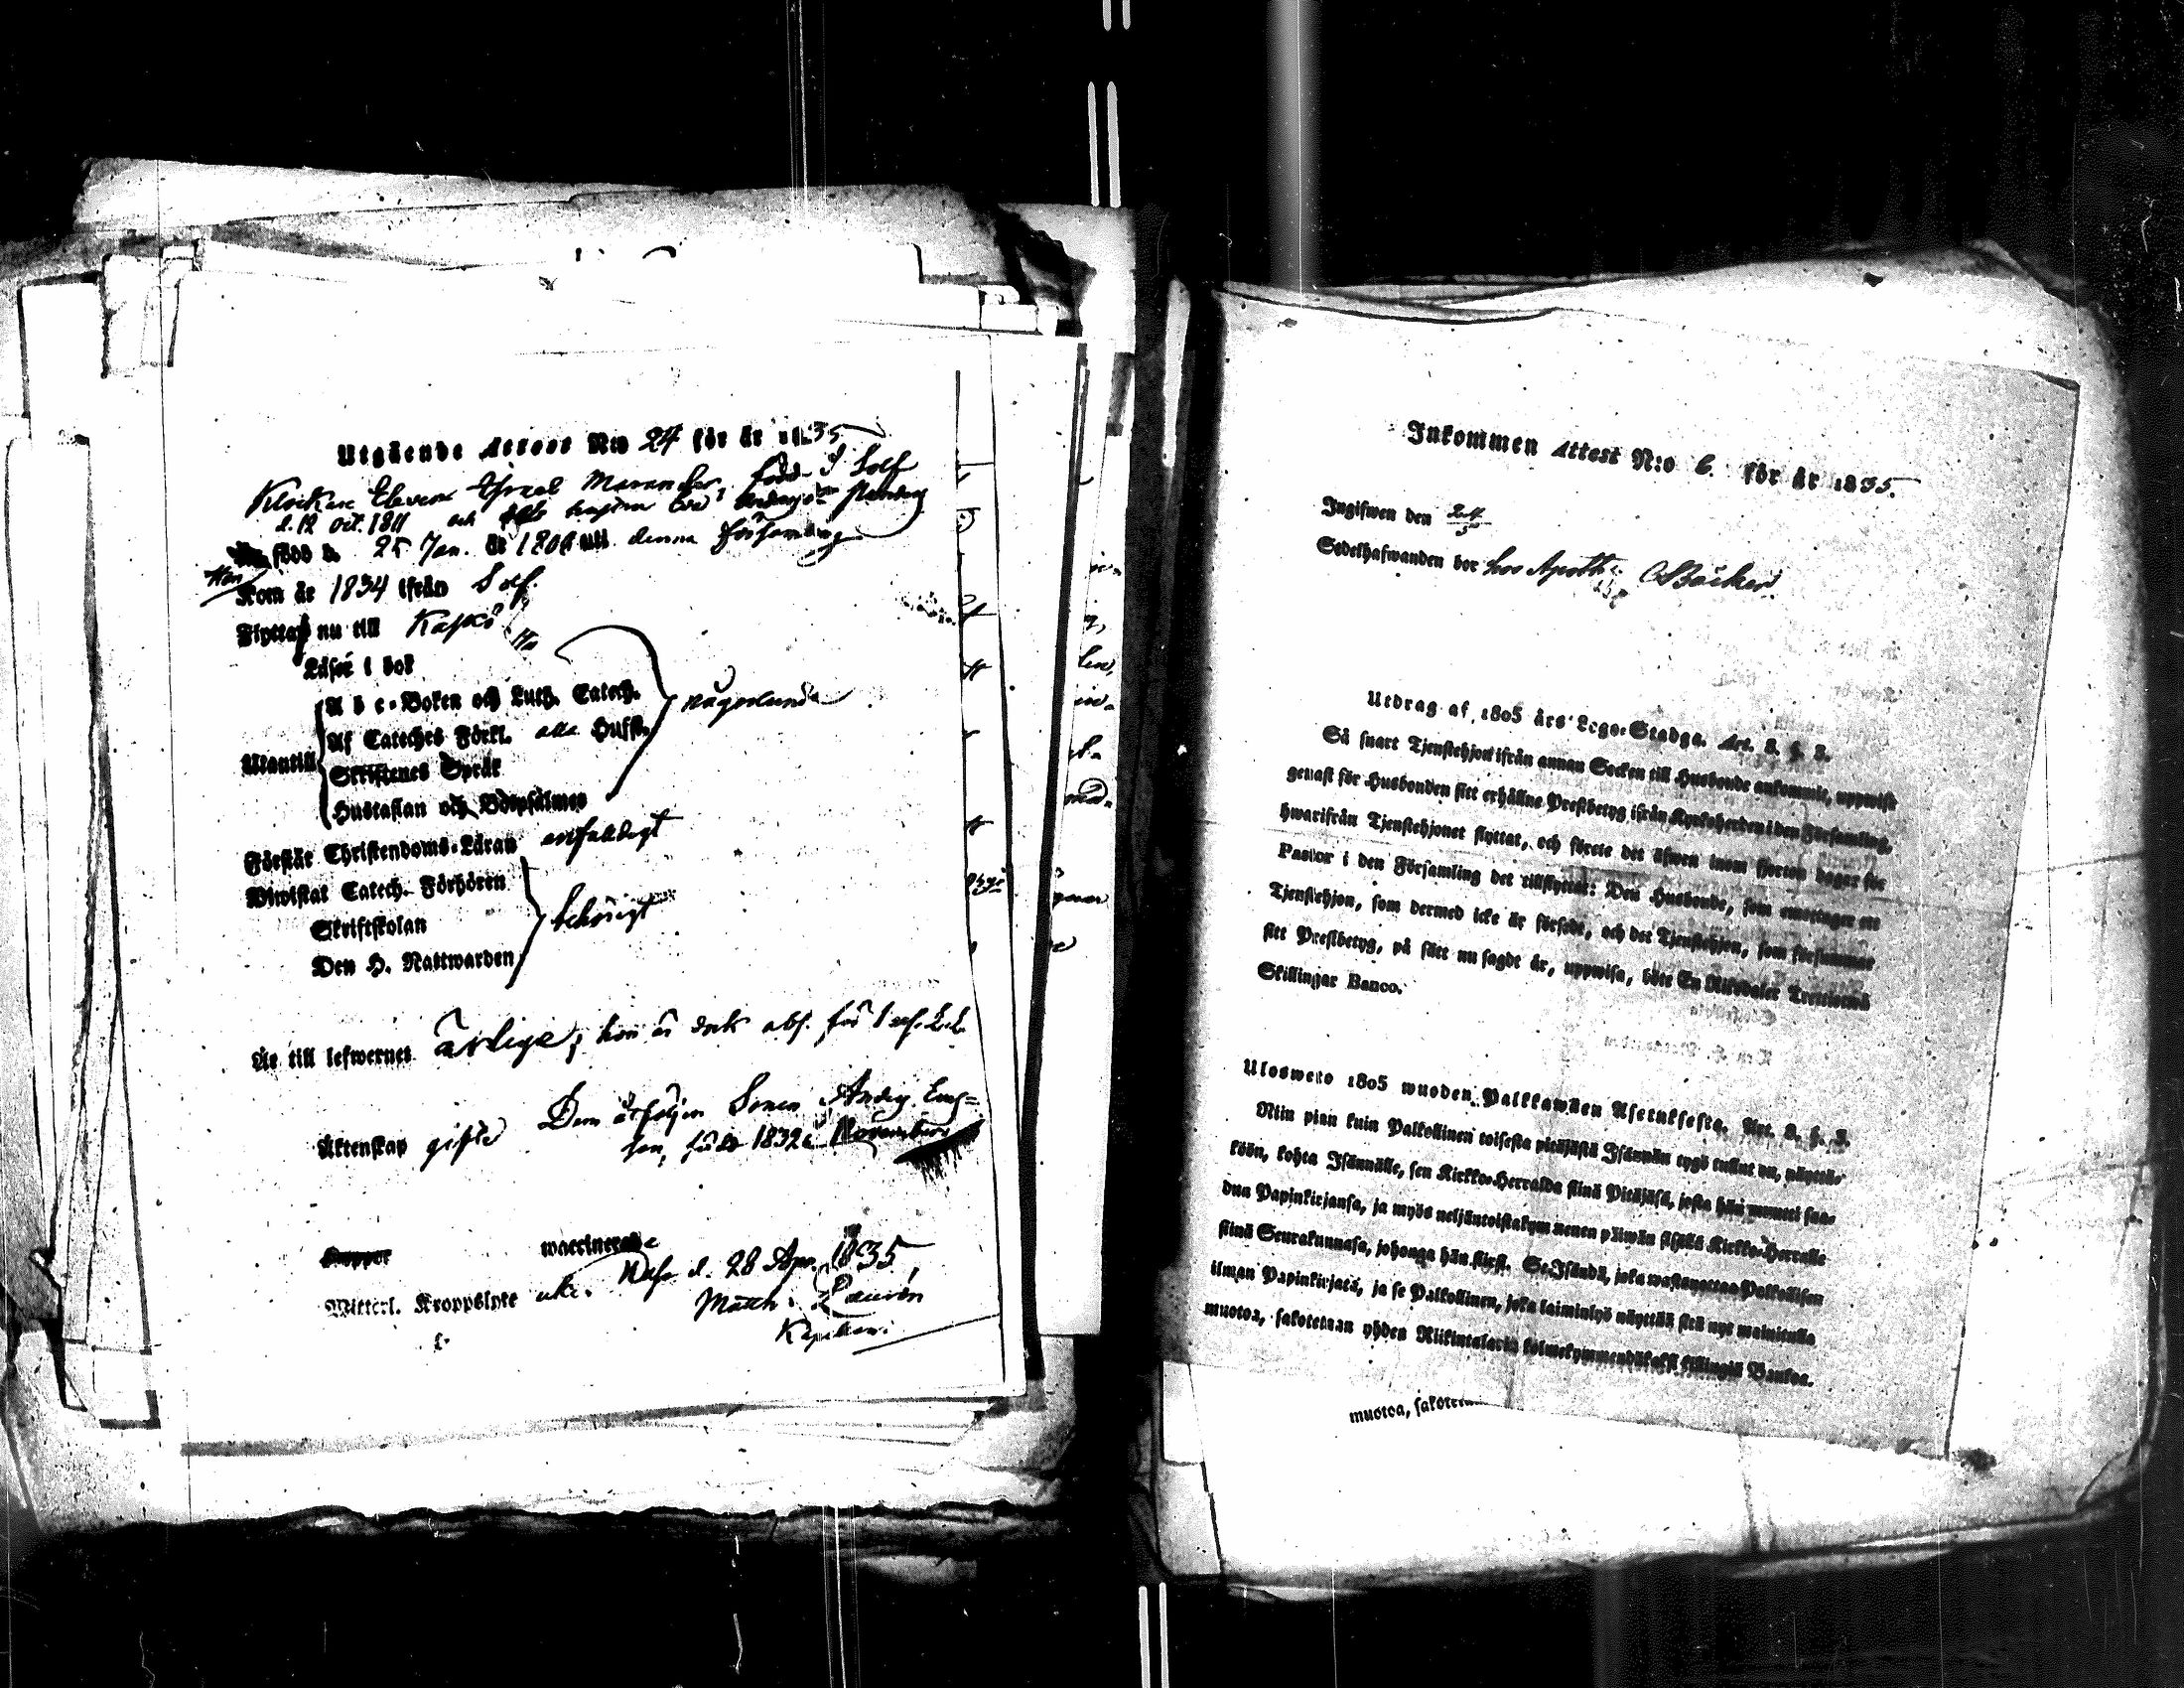 Utgående Attest N:o 24 för år 1835
Klockare Eleven Israel Marander, född i Solf
d. 12 Oct. 1811 och hustru
född d. 25 Jan. år 1806 till denna församling
Han Kom år 1834 ifrån Solf.
Flyttar nu till Kaskö
Läser i bok
A b c-Boken och Luth. Catech.
Utantill Af Cateches Förkl. alla Hufst. någorlunda
Skriftenes Språk
Hustaflan och Botpsalmer
Förstår Christendoms-Läran enfaldigt
Biwistat Catech. Förhören
Skriftskolan behörigt
Den H. Nattwarden
Är till lefwernet ärlige; hon är dock abs. för
Äktenskap gifte Dem åtföljer Sonen Anders
född 1832 i November
Koppor waccinerade
Mitterl. Kroppslyte Wasa d. 28 Apr. 1835
Matth. Laurén
Kapellan
Inkommen Attest N:o 6. för år 1835.
Ingifwen den 24/5
Sedelhafwanden bor hos Apoth. Bäcker
Utdrag af 1805 års Lego-Stadga. Art. 2. §. 3.
Så snart Tjenstehjon ifrån annan Socken till Husbonde ankommit, uppwise
genast för Husbonden sitt erhållne Prestbetyg ifrån Kyrkoherden i den Församling,
hwarifrån Tjenstehjonet flyttat, och förete det äfwen inom fjorton dagar för
Pastor i den Församling det tillflyttat: Den Husbonde, som emottager ett
Tjenstehjon, som dermed icke är försedt, och det Tjenstehjon, som försummar
sitt Prestbetyg, på sätt nu sagdt är, uppwisa, böte En Riksdaler Trettiotwå
Skillingar Banco.
Ulosweto 1805 wuoden Palkkawäen Asetuksesta. Art. 2. §. 3.
Niin pian kuin Palkollinen toisesta pitäjästä Isännän tygö tullut on, näyttä-
köön, kohta Isännälle, sen Kirkko-Herralda siinä Pitäjäsä, josta hän muutti saa-
dun Papinkirjansa, ja myös neljäntoistakymmenen päiwän sisällä Kirkko-Herralle
siinä Seurakunnasa, johonga hän siirsi. Se Isändä, joka wastanottaa Palkollisen
ilman Papinkirjatä, ja se Palkollinen, joka laiminlyö näyttää sitä nyt mainitulla
muotoa, sakotetaan yhden Riikintalarin kolmekymmendäkaksi killingiä Bankoa.
muotoa,